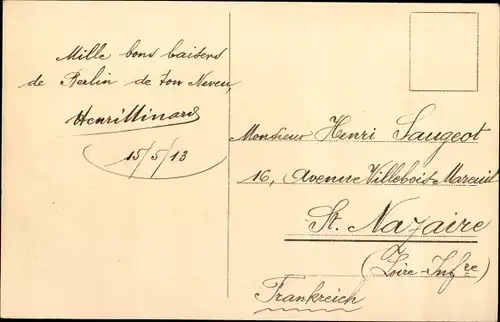 Mille bons baisers
de Berlin de ton Neveu,
Henri Minard
15/5/13
Monsieur Henri Saugeot
16, Avenue Villebois-Mareuil
St. Nazaire
(Loire-Infre)
Frankreich